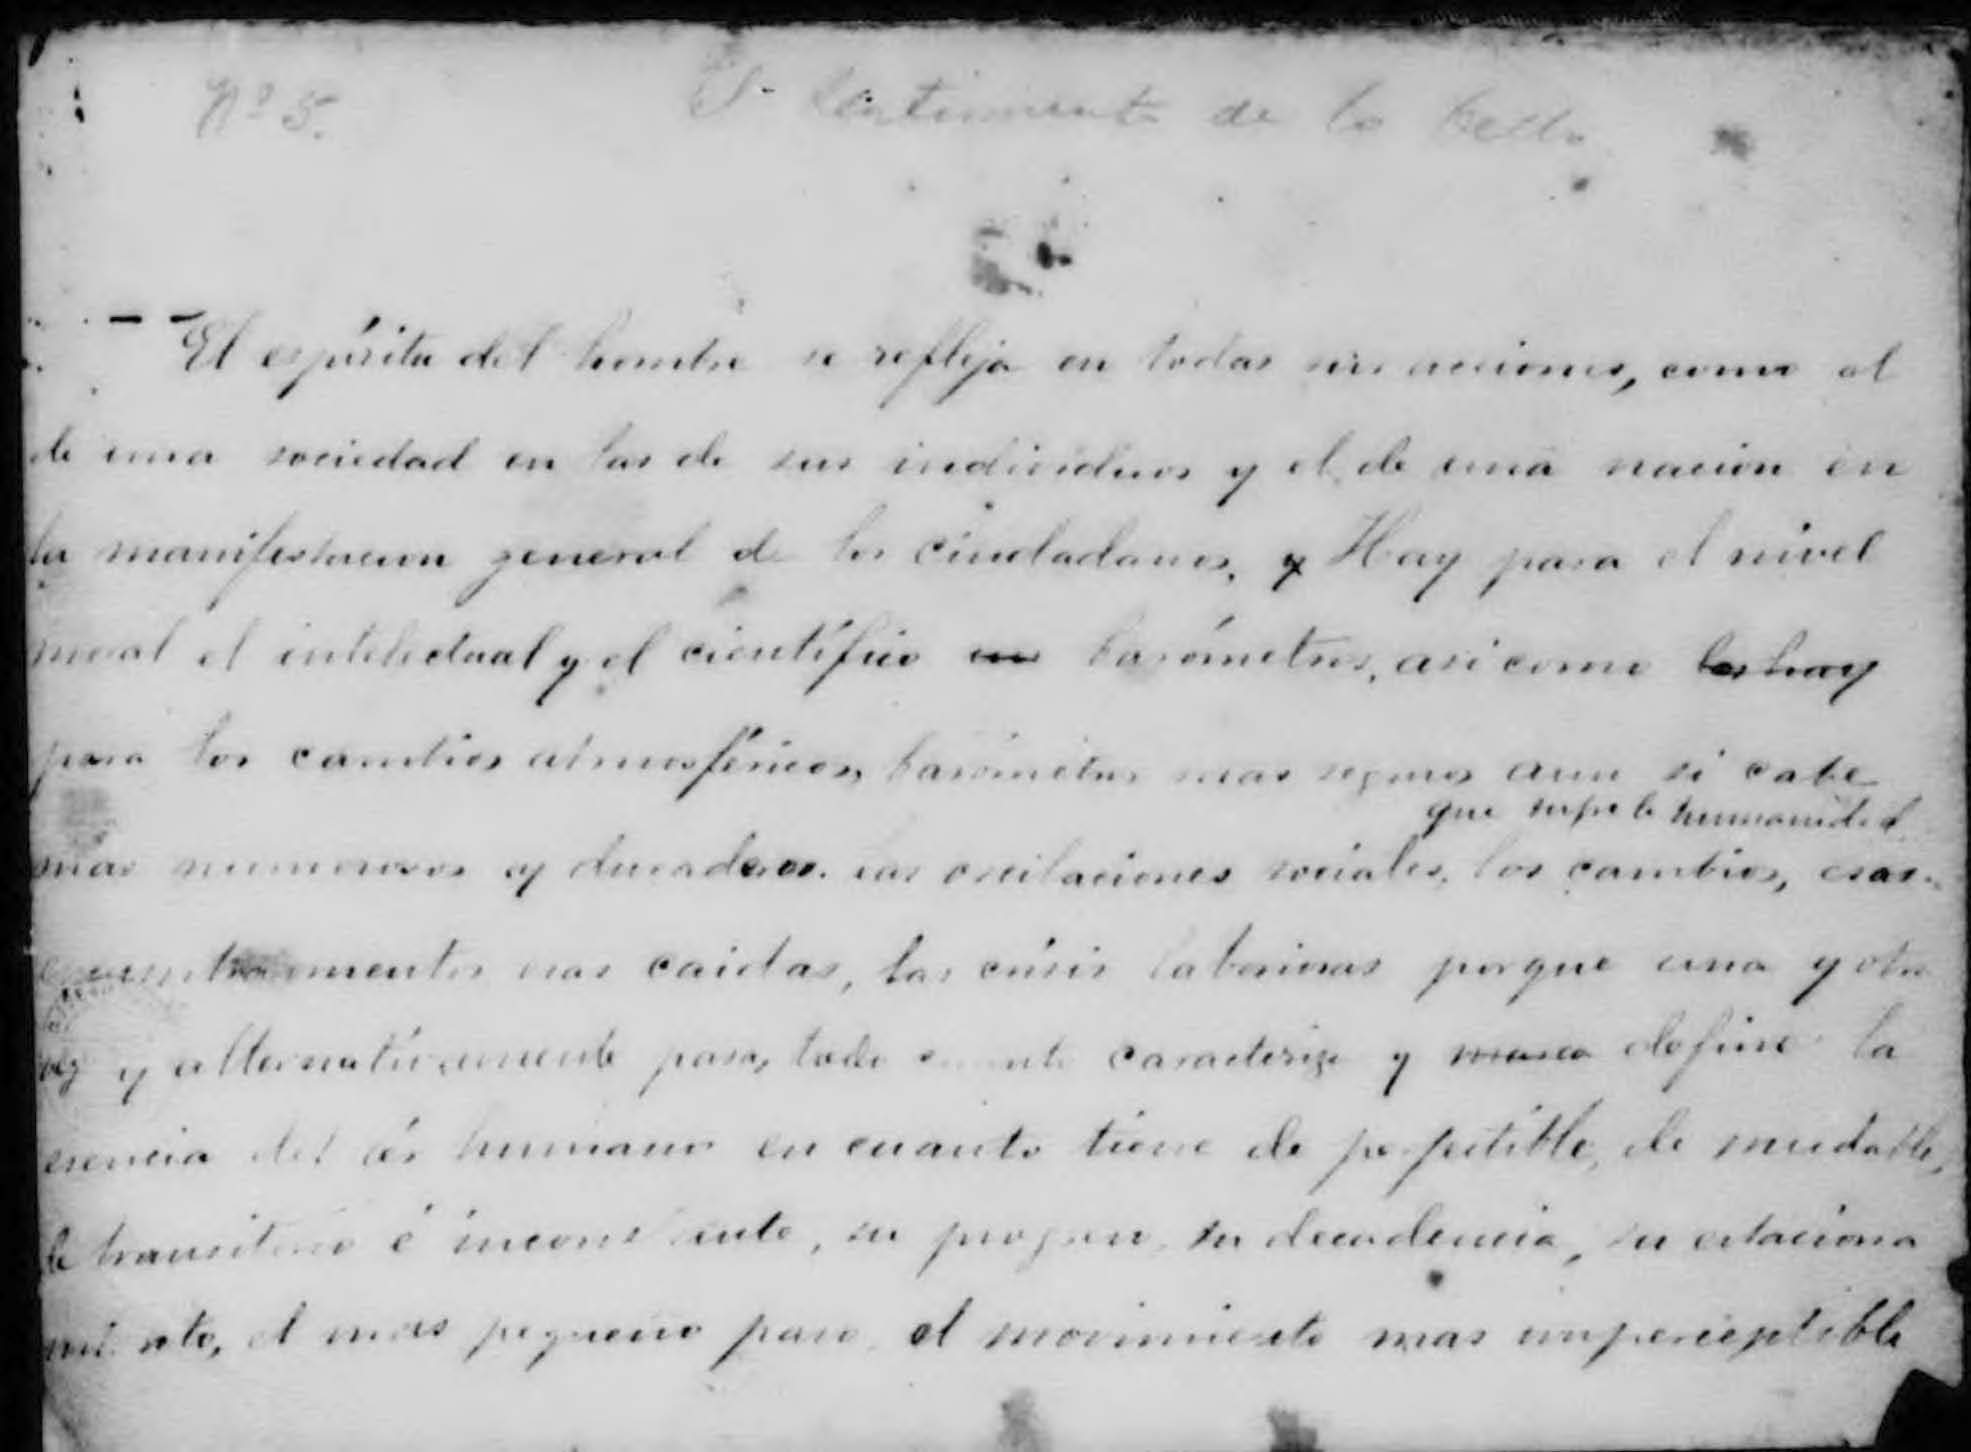 Nº 5. El Sentimiento de lo bello
El espíritu del hombre se refleja en todas sus acciones, como el
de una sociedad en las de sus individuos y el de una nacion en
la manifestacion general de los ciudadanos, y Hay para el nivel
moral el intelectual y el científico barómetros, asi como los hay
para los cambios atmosféricos, barómetros mas seguros aun si cabe
que sufre la humanidad
mas numerosos y duraderos. las oscilaciones sociales, los cambios, esas
esas caidas, las crísis laboriosas porque una y otra
vez y alternativamente pasa, todo caracteriza y define la
esencia del sér humano en cuanto tiene de perfectible, de mudable,
de transitorio é inconsciente, su progreso, su decadencia, su estaciona
miento, el mas pequeño paso, el movimiento mas imperceptible